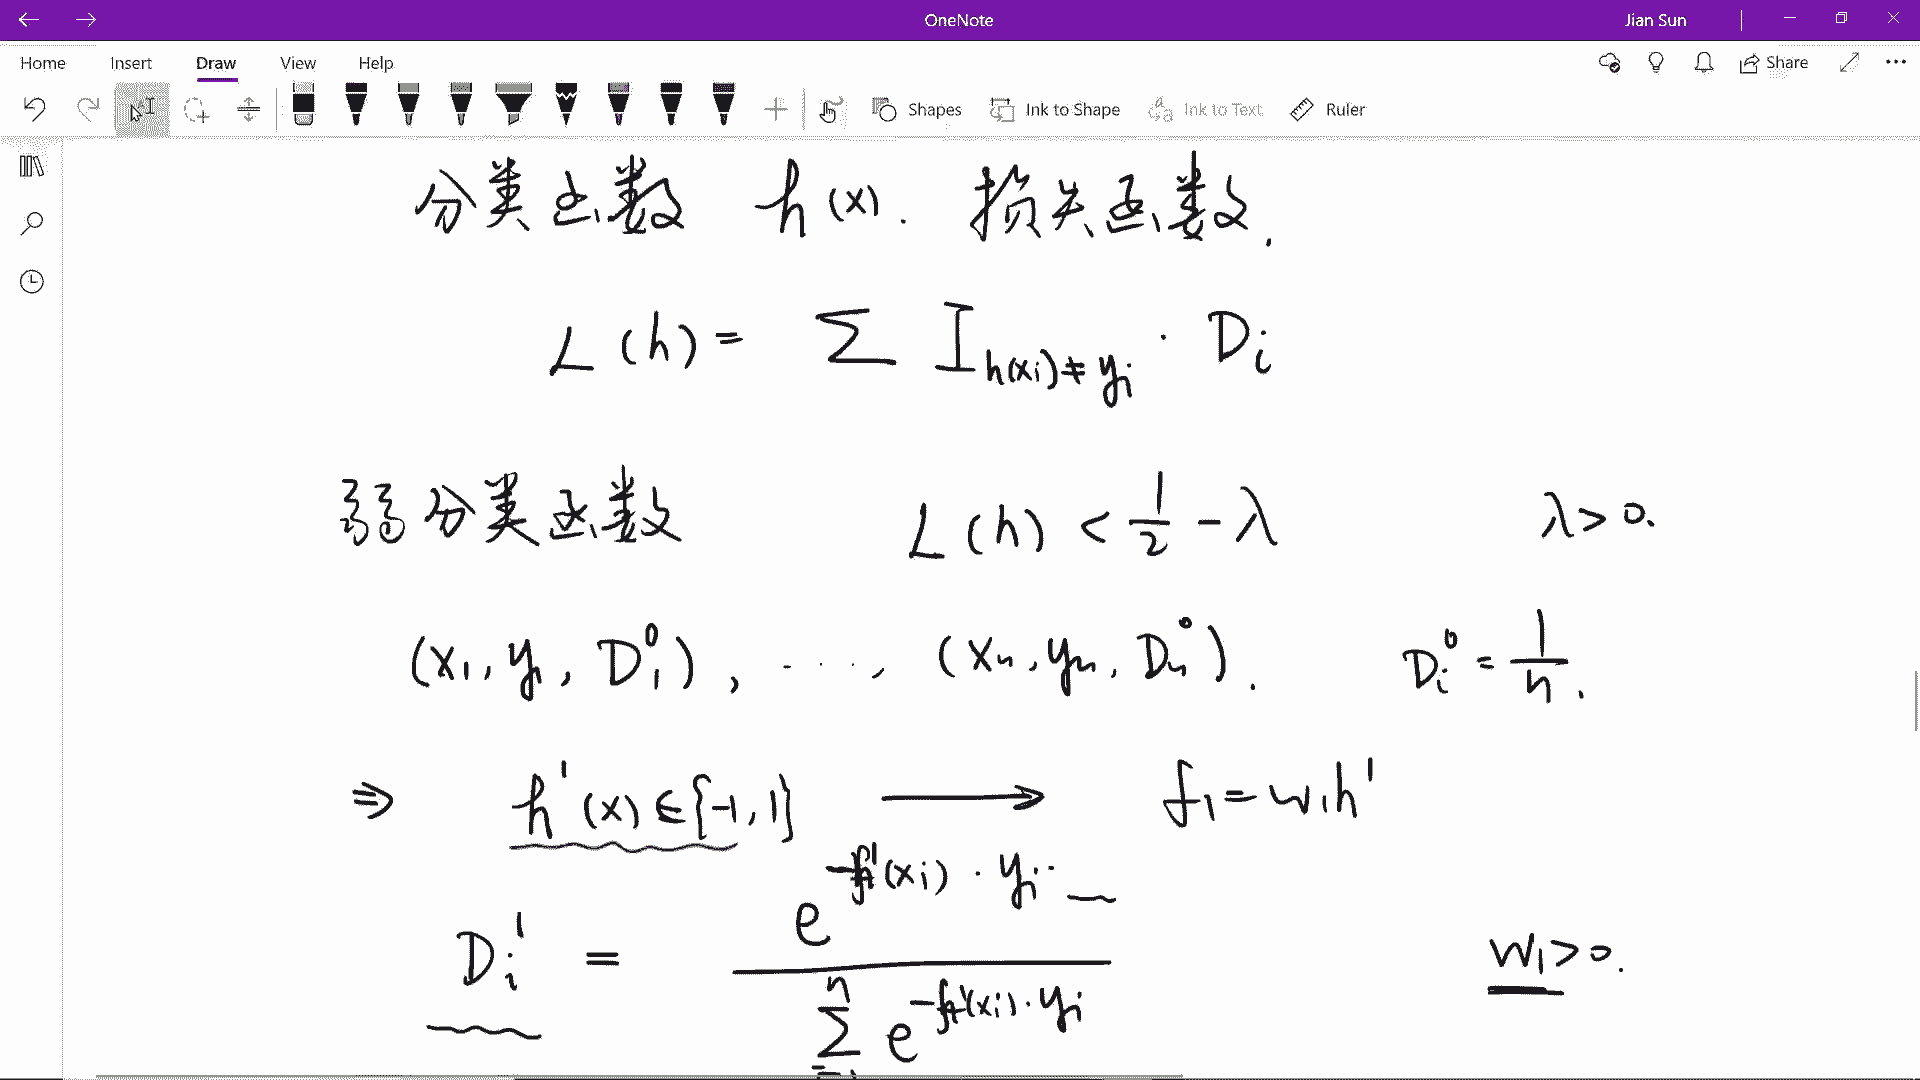 OneNote
Jian Sun
Home Insert Draw View Help
Share
Shapes Ink to Shape Ink to Text Ruler
分类函数 h(x). 损失函数.
L(h) = Σ I_{h(xi)≠yi} · Di
弱分类函数 L(h) < 1/2 - λ λ > 0.
(x1, y1, D1^0), ····, (xn, yn, Dn^0). Di^0 = 1/n.
⇒ h^1(x) ∈ {-1, 1} ⟶ f1 = w1h^1
Di^1 = e^{-f^1(xi)·yi} / Σ^n e^{-f^1(xi)·yi} w1 > 0.